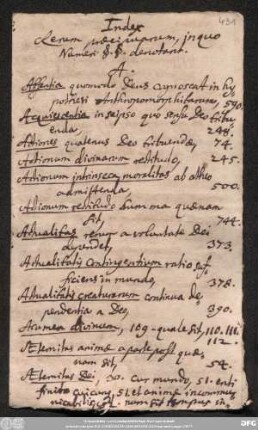 431
Index
Rerum praecipuarum, in quo
Numeri §.§. denotant.
A.
quomodo Deus cognoscat in hy
postesi Anthropomorphitarum, 590.
Acquiescentia in seipso quo sensu Deo tribu
enda, 248.
Actiones quatenus Deo tribuendae, 74.
Actionum divinarum rectitudo, 245.
Actionum intrinseca moralitas ab atheo
admittenda, 500.
Actionum rectitudo summa quaenam
sit, 744.
Actualitas rerum a voluntate Dei
dependet, 373.
Actualitatis contingentium ratio suf
ficiens in mundo, 378.
Actualitatis creaturarum continua de
pendentia a Deo, 390.
Acumen divinum, 109. quale sit, 110. 111.
112.
Aeternitas animae a parte post quae
nam sit, 54.
Aeternitas Dei, 50. cur mundo, 51. enti
finito cuicunque, 51. et animae incommu
nicabilis, num sit tempus in